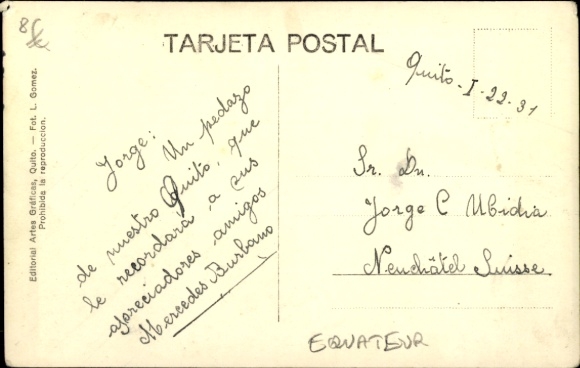 8
TARJETA POSTAL
Quito - I - 22 - 31
Jorge: Un pedazo
de nuestro Quito, que
le recordará a sus
apreciadores amigos
Mercedes Burbano
Sr. Dn.
Jorge C Ubidia
Neuchâtel Suisse.
EQUATEUR
Editorial Artes Gráficas, Quito. — Fot. L. Gomez.
Prohibida la reproduccion.